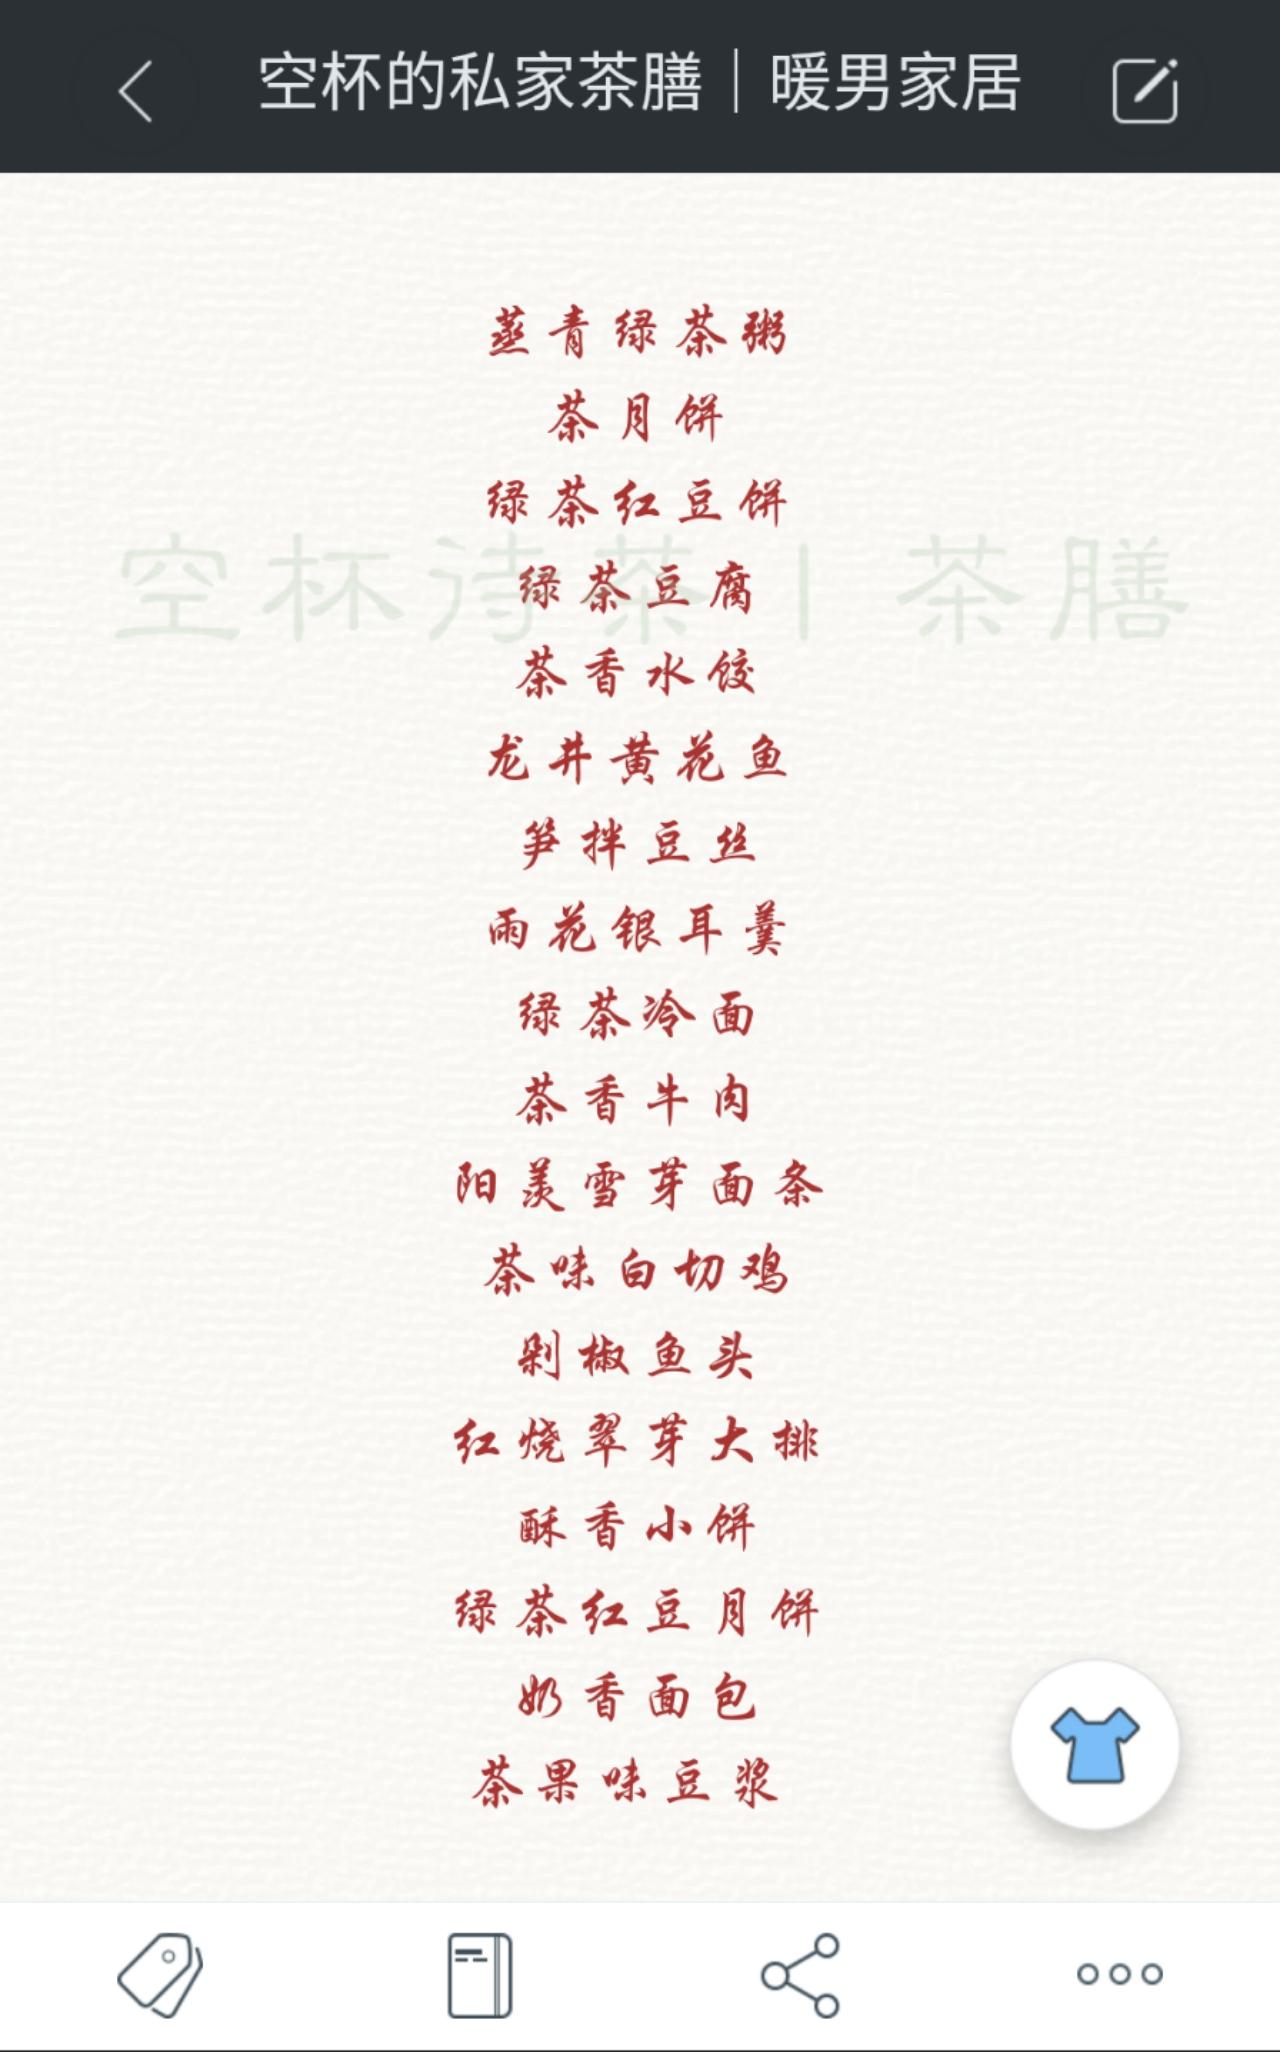 空杯的私家茶膳｜暖男家居
蒸青绿茶粥
茶月饼
绿茶红豆饼
空杯诗茶｜茶膳
绿茶豆腐
茶香水饺
龙井黄花鱼
笋拌豆丝
雨花银耳羹
绿茶冷面
茶香牛肉
阳羡雪芽面条
茶味白切鸡
剁椒鱼头
红烧翠芽大排
酥香小饼
绿茶红豆月饼
奶香面包
茶果味豆浆